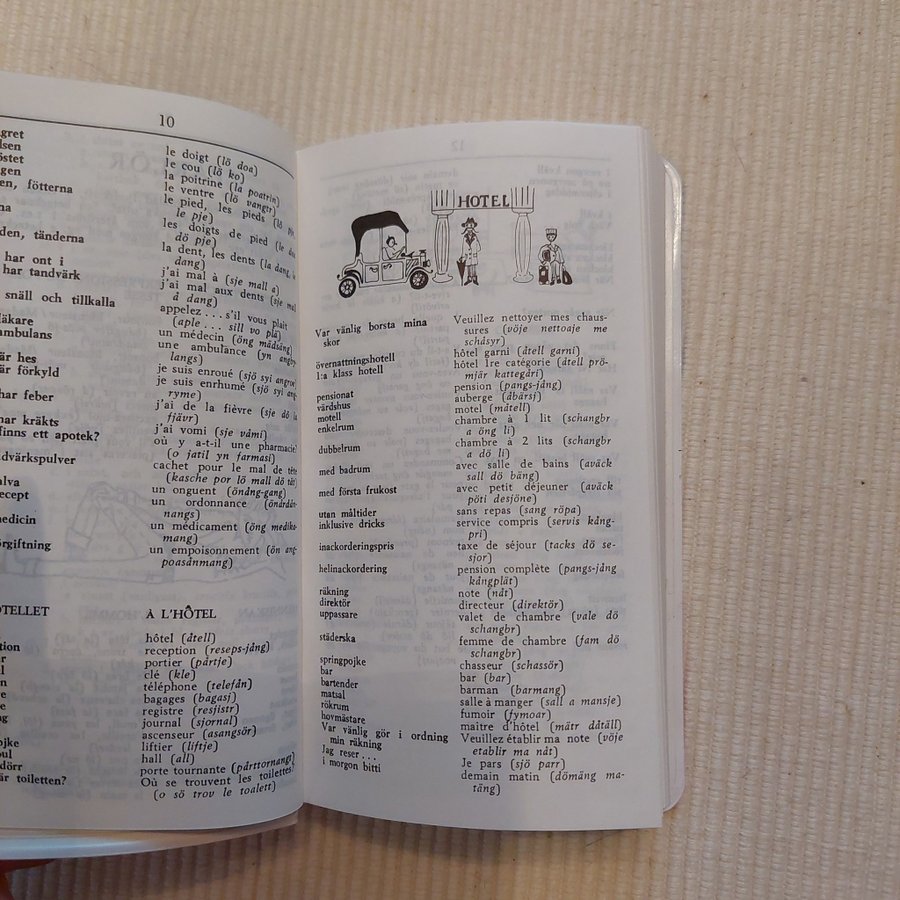 10
gret
lsen
östet
gen
en, fötterna
na
den, tänderna
har ont i
har tandvärk
snäll och tillkalla
läkare
ambulans
är hes
är förkyld
har feber
har kräkts
finns ett apotek?
ndvärkspulver
alva
ecept
medicin
örgiftning
le doigt (lö doa)
le cou (lö ko)
la poitrine (la poatrin)
le ventre (lö vangtr)
le pied, les pieds (lö
le pje)
les doigts de pied (le do
dö pje)
la dent, les dents (la dang, le
dang)
j'ai mal à (sje mall a)
j'ai mal aux dents (sje mal
å dang)
appelez . . . s'il vous plait
(aple . . . sill vo plä)
un médecin (öng mädsäng)
une ambulance (yn angby-
langs)
je suis enroué (sjö syi angroe)
je suis enrhumé (sjö syi ang-
ryme)
j'ai de la fièvre (sje dö la
fjävr)
j'ai vomi (sje våmi)
où y a-t-il une pharmacie?
(o jatil yn farmasi)
cachet pour le mal de tête
(kasche por lö mall dö tät)
un onguent (öndng-gang)
un ordonnance (önårdån-
nangs)
un médicament (öng medika-
mang)
un empoisonnement (ön ang-
poasånmang)
OTELLET
À L'HÔTEL
tion
ar
n
re
re
ng
ojke
oul
dörr
är toiletten?
hôtel (åtell)
reception (reseps-jång)
portier (pårtje)
clé (kle)
téléphone (telefån)
bagages (bagasj)
registre (resjistr)
journal (sjornal)
ascenseur (asangsör)
liftier (liftje)
hall (all)
porte tournante (pårttornangt)
Où se trouvent les toilettes?
(o sö trov le toalett)
HOTEL
Var vänlig borsta mina Veuillez nettoyer mes chaus-
skor sures (vöje nettoaje me
schåsyr)
övernattningshotell hôtel garni (åtell garni)
1:a klass hotell hôtel 1re catégorie (åtell prö-
mjär kattegåri)
pensionat pension (pangs-jång)
värdshus auberge (åbärsj)
motell motel (måtell)
enkelrum chambre à 1 lit (schangbr
a öng li)
dubbelrum chambre à 2 lits (schangbr
a dö li)
med badrum avec salle de bains (aväck
sall dö bäng)
med första frukost avec petit déjeuner (aväck
pöti desjöne)
utan måltider sans repas (sang röpa)
inklusive dricks service compris (servis kång-
pri)
inackorderingspris taxe de séjour (tacks dö se-
sjor)
helinackordering pension complète (pangs-jång
kångplät)
räkning note (nåt)
direktör directeur (direktör)
uppassare valet de chambre (vale dö
schangbr)
städerska femme de chambre (fam dö
schangbr)
springpojke chasseur (schassör)
bar bar (bar)
bartender barman (barmang)
matsal salle à manger (sall a mansje)
rökrum fumoir (fymoar)
hovmästare maitre d'hôtel (mätr dåtäll)
Var vänlig gör i ordning Veuillez établir ma note (vöje
min räkning etablir ma nåt)
Jag reser . . . Je pars (sjö parr)
i morgon bitti demain matin (dömäng ma-
täng)